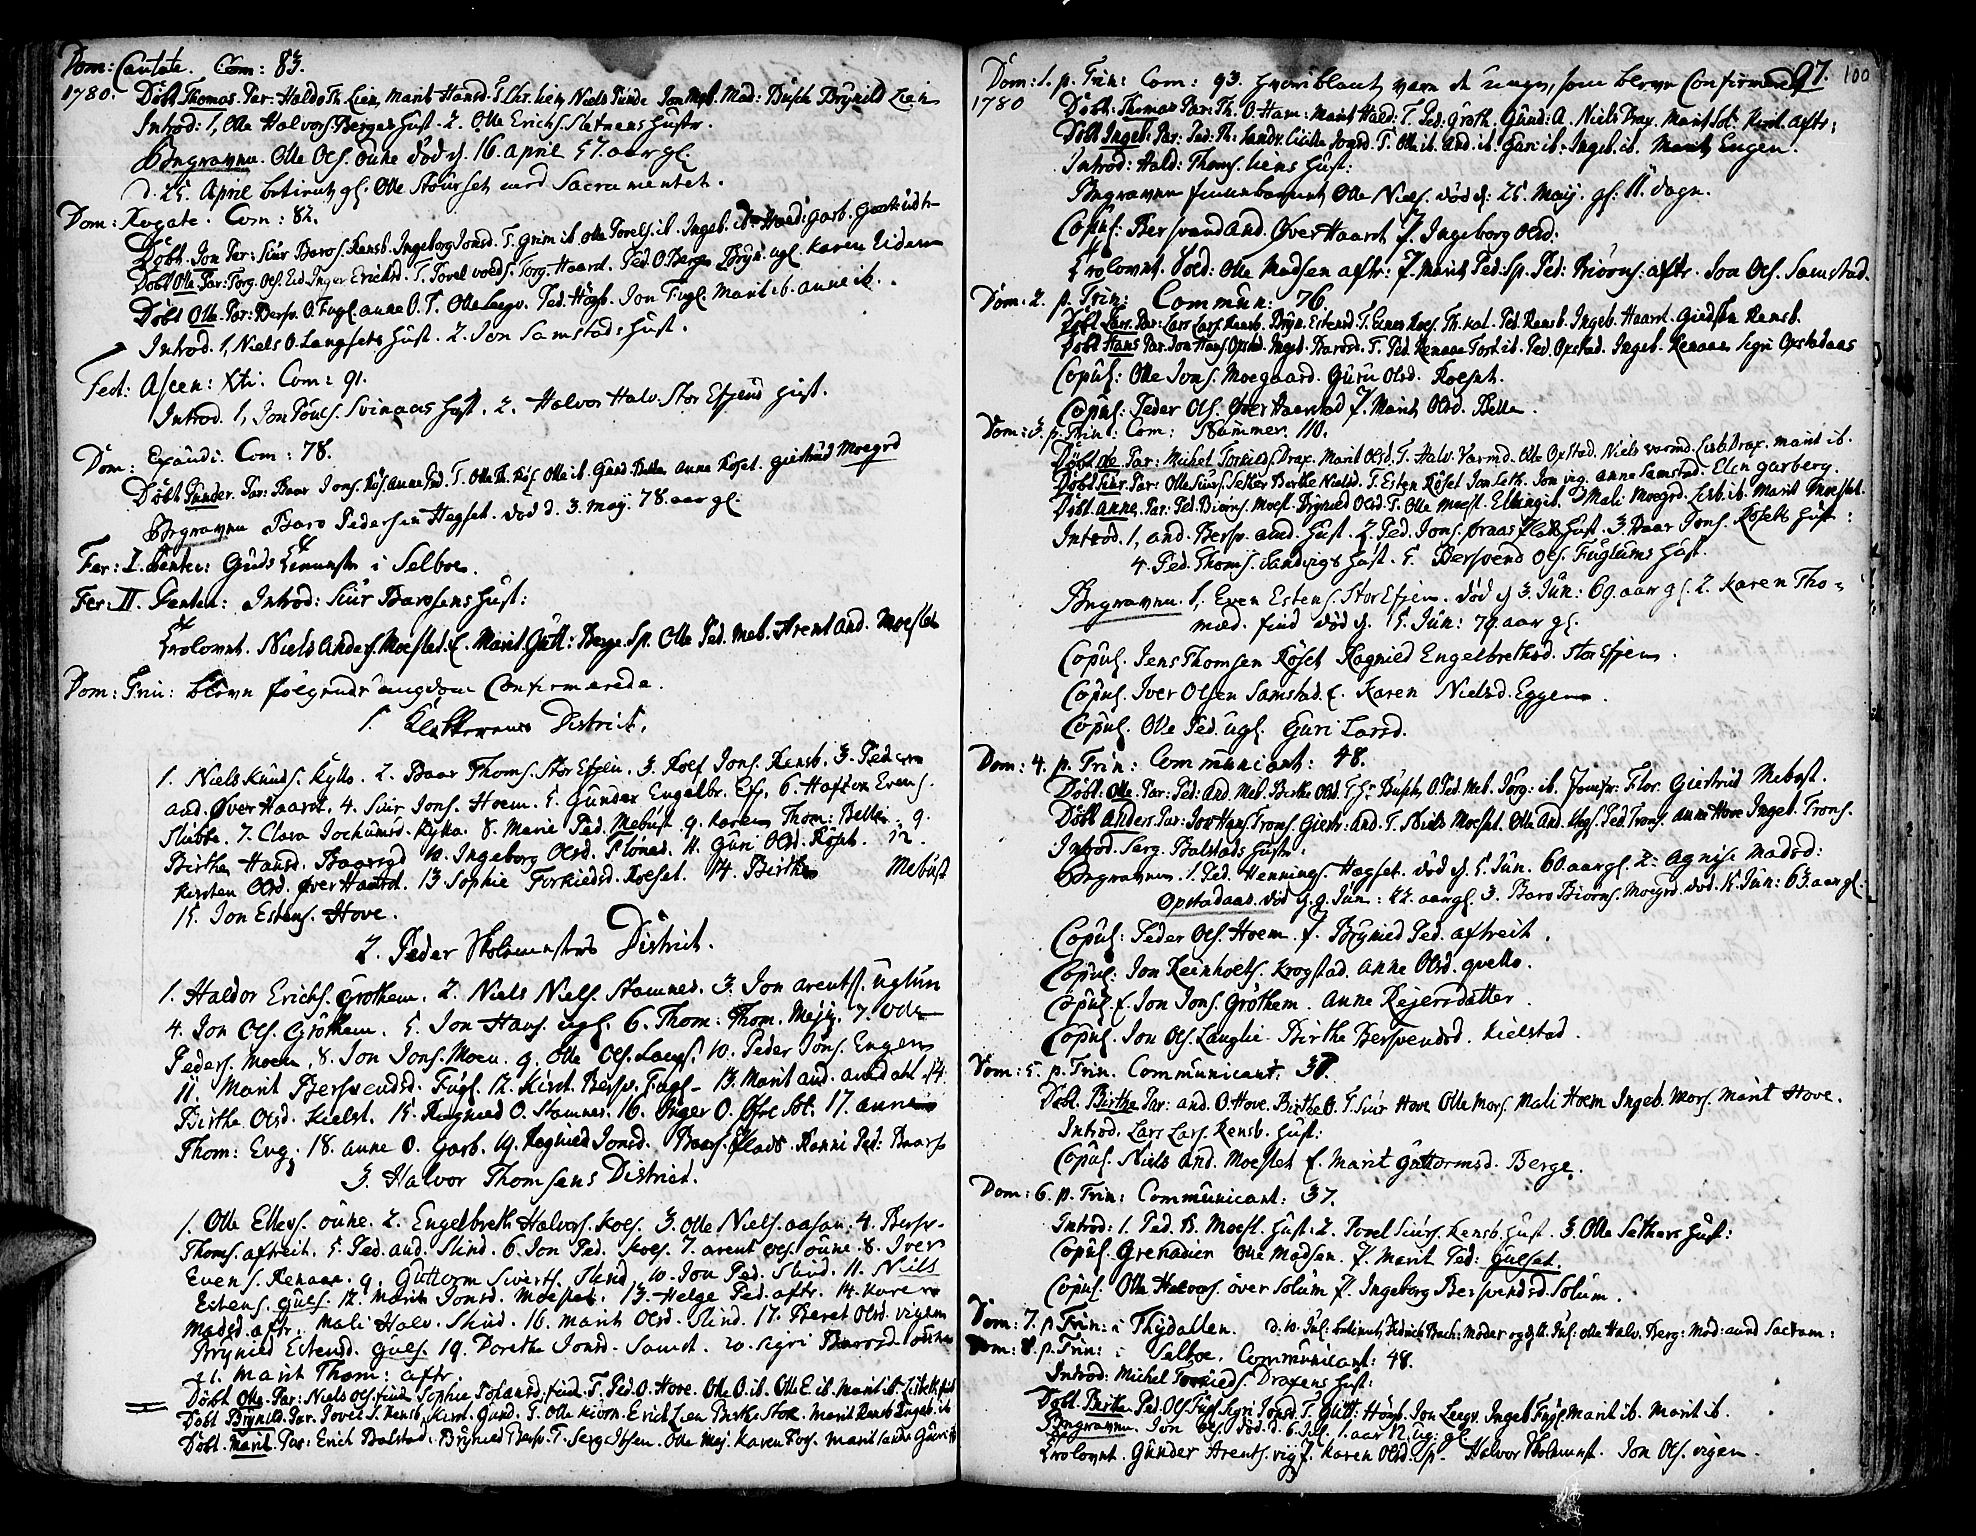 Dom: Cantate. Com: 83.
1780. Döbt Thomas. Par: Haldo Th. Lien, Marit Hansd. T. Chr. Lien Niels Mad: Busch Brynild Lien
Introd: 1, Olle Halvors. Berges Hust. 2. Olle Erichs. Slatnæs Hustr.
Begravne. Olle Ols. öune död d. 16. April 57. aar gl.
d. 25. April betient gl. Olle Stourset med Sacramentet.
Dom: Rogate. Com: 82.
Döbt. Jon Par: Siur Baros. Rensb. Ingeborg Jonsd. T. Grim ib. Olle Torels. ib. Ingeb. ib.
Döbt Olle. Par: Torg. Ols. Eid. Inger Erichsd. T. Torg. Haard. Ped. O. Berge Bryn. ugl. Karen Eidem
Döbt Olle. Par: Bersv. O. Fugl. Anne O. T. Olle Leegv. Ped. Högb. Jon Fugl. Marit ib. Anne ib.
Introd. 1, Niels O. Langsets Hust. 2. Jon Samstads Hust.
Fest: Ascen: Xti. Com: 91.
Introd. 1, Jon Töns. Svinaas Hust. 2. Halvor Halv. Stor Efjend Hust.
Dom: Exaudi. Com: 78.
Döbt Gunder. Par: Baar Jons. Rös. Anne Ped. T. Olle Th. Rös. Olle ib. Gund. Bella Anne Röset. Giertrud Moegrd
Begravne Baro Pedersen Hegset. död d. 3. May. 78. aar gl.
Fer: I. Pentec: Guds tienneste i Selboe.
Fer: II. Penten: Introd: Siur Barosens Hust:
Trolovet. Niels Anders. Moeslet. f. Marit Gutt: Berge. Sp. Olle Ped. Meb. Arent And. Moeslet
Dom: Trin: bleve fölgende ungdom Confirmerede.
1. Klokkerens District.
1. Niels Knuds. Kyllo. 2. Baar Thoms. Stor Efjen. 3. Roef Jons. Rensb. 3. Peder
And. Øver Haard. 4. Siur Jons. Hoem. 5. Gunder Engelbr. Efj. 6. Haftor Evens.
Slubbe. 7. Clara Jochumsd. Kyllo. 8. Marie Ped. Mebust. 9. Karen Thom: Bella. 9.
Birthe Hansd. Baargd 10. Ingeborg Olsd. Flones. 11. Guri Olsd. Röset. 12.
Kirsten Olsd. Øver Haard. 13 Sophie Torkiedsd. Roeset. 14. Birthe Mebust
15. Jon Estens. Hove.
2. Peder Skolemesters District.
1. Haldor Erichs. Gröthem. 2. Niels Niels. Stamnes. 3. Jon Arents. uglun
4. Jon Ols. Gröthem. 5. Jon Hans. ugl. 6. Thom: Thom. Mejz. 7. Ole
Peders. Moen. 8. Jon Jons. Moen. 9. Olle Ols. Langs. 10. Peder Jons. Engen
11. Marit Bersvendsd. Fugl. 12. Kirst. Bersv. Fugl. 13. Marit And. Amdahl. 14
Birthe Olsd. Kielst. 15. Ragnied O. Stamnes. 16. Inger O. Øfre bt. 17. Anne
Thom: Eng. 18. Anne O. Garb. 19. Ragnied Jonsd. Braas. Plads. Ranni Ped: Baars
3. Halvor Thomsens District.
1. Olle Ellevs. öune. 2. Engelbreth Halvors. Koes. 3. Olle Niels. Aasan. 4. Bersv.
Thoms. aftreit. 5. Ped. And. Slind. 6. Jon Ped. Koes. 7. Arent Ols. öune. 8. Iver
Evens. Renaae. 9. Guttorm Siverts. Slind, 10. Jon Ped. Slind. 11. Niels
Estens. Guls. 12. Marit Jonsd. Moeslet. 13. Helge Ped. aftr. 14. Karen
Madsd. aftr. Mali Halv. Slind. 16. Marit Olsd. Slind. 17. Beret Olsd. Vigen
Brynied Estensd. Guls. 19. Dorethe Jonsd. Samst. 20. Sigri Barosd.
21. Marit Thom: aftr
Döbt. Olle. Par: Niels Ols. Sophie T. Ped. O. Hove. Olle O. ib. Olle E. ib. Marit ib.
Döbt Brynild. Par. Rensb. Kirst. Gund. T. Olle Erich Lien Berthe Stok. Marit Rensb Ingeb. ib
Döbt. Marit. Par: Erich Balstad. Brynied Bersv. T. Serg. Ibsen. Olle Mej. Karen Fug. Marit

Dom: 1. p. Trin: Com: 93. hvoriblant vare de unge, som bleve Confirmered 97. 100
1780 Döbt. Thomas Par: Th. O. Ham: Marit Hald: T. Ped: Gröth. Gund: A. Niels Drax. Marit Sol: Kirst. Aftr:
Döbt Ingeb: Par: Ped: Th: Sandv. T. Olle ib. And. ib. Guri ib: Ingeb. ib. Marit Engen.
Introd: Hald: Thoms. Liens Hust:
Begravne Olle Niels. död d: 25. Maij. gl: 11. dage.
Copul: Bersvend And. Øver Haard f. Ingeborg Olsd:
Trolovet. Sold: Olle Madsen aftr: f. Marit Ped: Sp. Ped: Biörns. aftr. Jon Ols. Samstad.
Dom: 2. p. Trin: Commun: 76.
Döbt Lars. Par: Lars Lars. Rensb. Bryn. Estensd. T. Ped. Rensb. Ingeb. Haard. Giertru Rensb.
Döbt Hans Par. Jon Hans. Opstad. Ingeb. Barosd. T. Ped. Renaae Tost ib. Ped. Opstad. Ingeb. Renaae Segri Opstadaas
Copul: Olle Jons. Moegaard. Guru Olsd. Roeset.
Copul: Peder Ols. Øver Haarstad f. Marit Olsd. Bella.
Dom: 3. p. Trin: Com: Nummer. 110.
Döbt Ole. Par: Michel Torkields. Drax. Marit Olsd. T. Halv. Varmd. Olle Opstad. Niels Varmd. Drax. Marit ib.
Döbt Siur. Par: Olle Siurs. Selker Berthe Nielsd. T. Esten Röset Jon Selk. Jon Anne Samstad. Elen Garberg.
Döbt. Anne. Par: Ped. Biörns. Moesl. Brynied Olsd. T. Olle Moesl. Mali Moegrd. Marit Moeslet.
Introd. 1, And. Bersv. Amd. Hust. 2. Ped. Jons. Braas Plads Hust. 3. Baar Jons. Rösets Hust:
4. Ped. Thoms. Sandvigs Hust. 5. Bersvend Ols. Fuglums Hust.
Begravne. 1. Even Estens. Stor Efjen. död d. 3. Jun: 69. aar gl. 2. Karen Tho=
mæd. död d. 5. Jun: 79 aar gl.
Copul. Jens Thomsen Röset Ragnied Engelbrethsd. Stor Efjen.
Copul. Iver Olsen Samstad. f. Karen Nielsd. Eggen.
Copul. Olle Ped. ugl. Guri Larsd.
Dom: 4. p. Trin: Communicant: 48.
Döbt. Olle. Par: Ped. And. Meb. Birthe Olsd. T. Hr Busch, O. Ped. Meb. Jörg: ib. Jomfr: Flor. Giertrud Mebust.
Döbt Anders. Par: Jon Hans. Trons. Giertr. And. T. Niels Moeslet. Olle And. Ped. Trons. Anne Hove Ingeb. Trons.
Introd. Serg. Balstads Hustr.
Begravne. 1. Ped. Hennings. Hegset. död d. 5. Jun. 60. aar gl. 2. Agnise Madsd:
Opstadaas. död d. 9. Jun: 72. aar gl. 3. Baro Biörns. Moegrd. död. 15. Jun: 63. aar gl.
Copul: Peder Ols. Hoem. f. Brynied Ped. aftreit.
Copul: Jon Reinholts. Krogstad. Anne Olsd. Qvello.
Copul. f. Jon Jons. Gröthem. Anne Rejersdatter.
Copul. Jon Ols. Langlie. Birthe Bersvendsd. Kielstad.
Dom: 5. p. Trin. Communicant: 38.
Döbt. Birthe Par: And. O. Hove. Birthe O. T. Siur Hove Olle Mors. Mali Hoem Ingeb. Mors. Marit Hove.
Introd. Lars Lars. Rensb. Hust:
Copul. Niels And. Moeslet f. Marit Guttormsd. Berge.
Dom: 6. p. Trin: Communicant: 37.
Introd: 1. Ped. B. Moesl. Hust. 2. Torel Siurs. Rensb. Hust. 3. Olle Selkers Hust:
Copul. Grenadeer Olle Madsen. f. Marit Ped: Gulset.
Copul. Olle Halvors. över Solum f. Ingeborg Bersvendsd. Solum.
Dom: 7. p. Trin: i Thydallen. d. 10. Jul. betient Bach: Moder og d. 11. Jul: Olle Halv. Berg: Mod: med Sacram:
Dom: 8. p. Trin: i Selboe. Communicant: 48.
Introd: Michel Torkields. Draxens Hust:
Döbt. Berthe. Ped. Ols. Fugl. Segri Jonsd. T. Gutt: Högb. Jon Leegv. Ingeb. Fugl. Marit ib. Marit ib.
Begravne. Jon Ols. död. d. 6. Jul. 1. aar 12. ug: gl.
Trolovet. Gunder Arents. vig f. Karen Olsd. Sp. Halvor Skolemest. Jon Ols. Vigen.